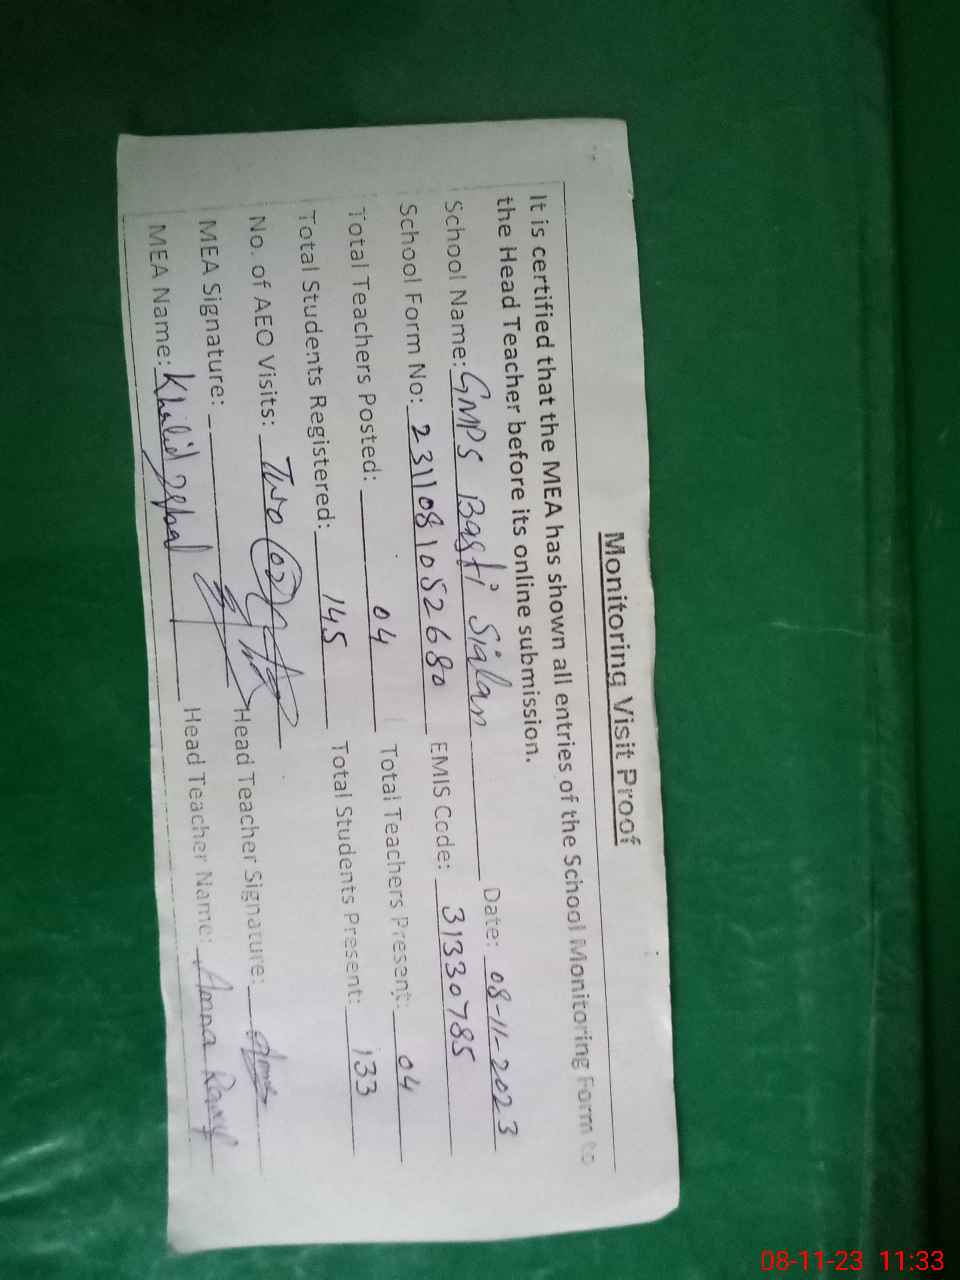 Monitoring Visit Proof
It is certified that the MEA has shown all entries of the School Monitoring Form to
the Head Teacher before its online submission.
School Name: GMPS Basti Sialan Date: 08-11-2023
School Form No: 2311081052680 EMIS Code: 31330785
Total Teachers Posted: 04 Total Teachers Present: 04
Total Students Registered: 145 Total Students Present: 133
No. of AEO Visits: Two (02)
MEA Signature: Head Teacher Signature:
MEA Name: Khalid Iqbal Head Teacher Name: Amna
08-11-23 11:33